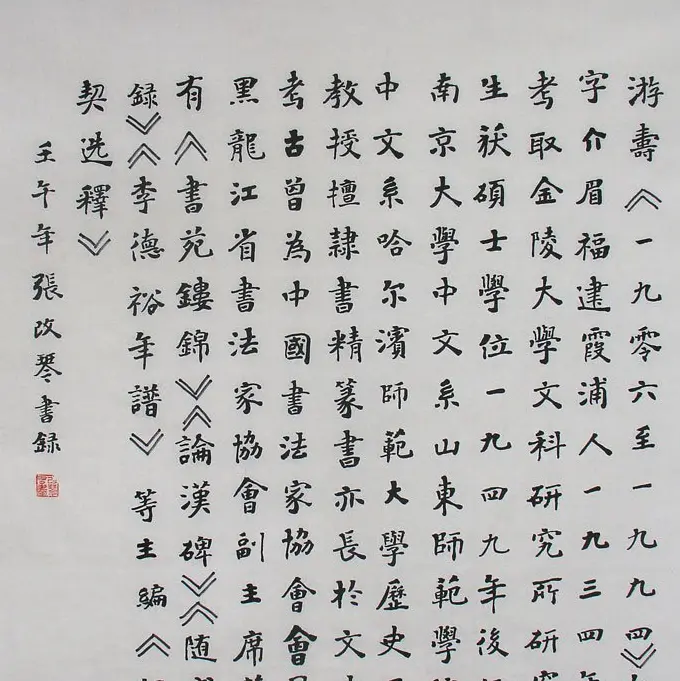 游壽《一九零六至一九九四》
字介眉福建霞浦人一九三四年
考取金陵大學文科研究所研究
生获碩士學位一九四九年後
南京大學中文系山東師範學
中文系哈尔濱師範大學歷史
教授擅隷書精篆書亦長於文
考古曾為中國書法家協會會
黑龍江省書法家協會副主席
有《書苑鏤錦》《論漢碑》《随
録》《李德裕年譜》等主編《
契选釋》
壬午年張改琴書録